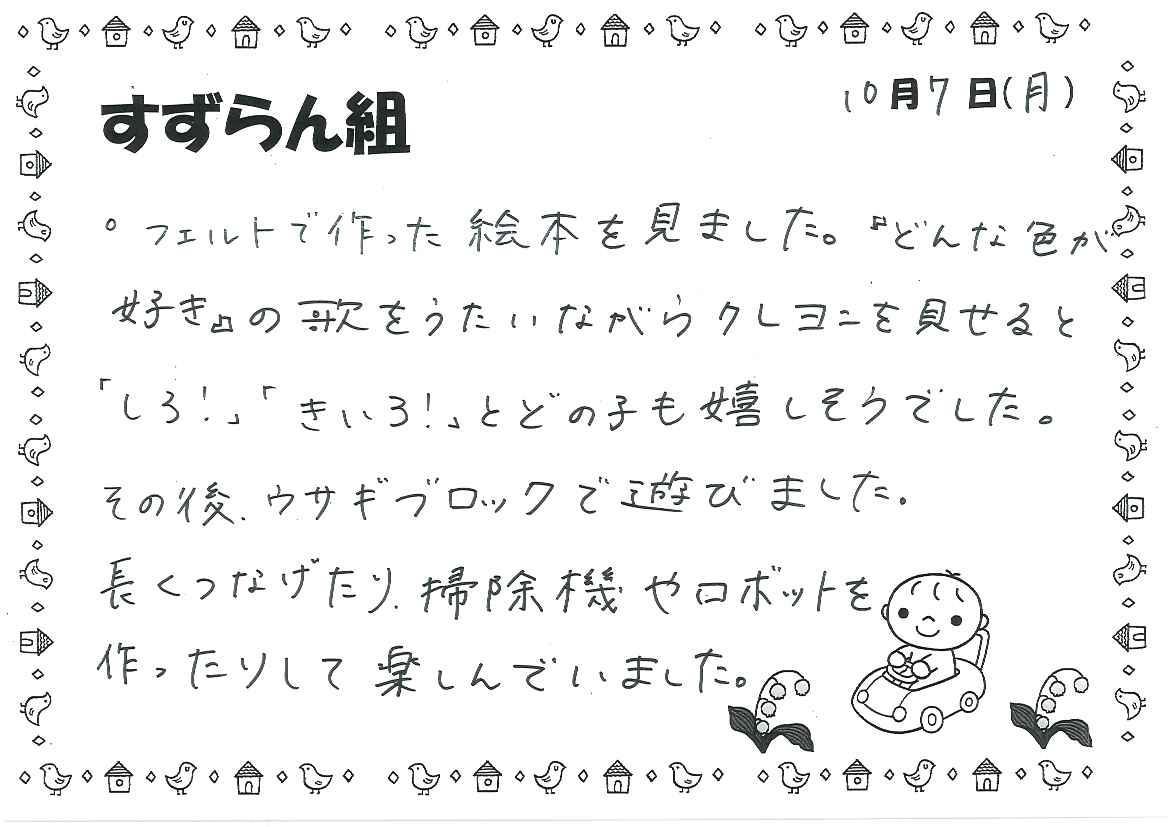 すずらん組
10月7日(月)
° フェルトで作った絵本を見ました。『どんな色が
好き』の歌をうたいながらクレヨンを見せると
「しろ!」「きいろ!」とどの子も嬉しそうでした。
その後、ウサギブロックで遊びました。
長くつなげたり、掃除機やロボットを
作ったりして楽しんでいました。